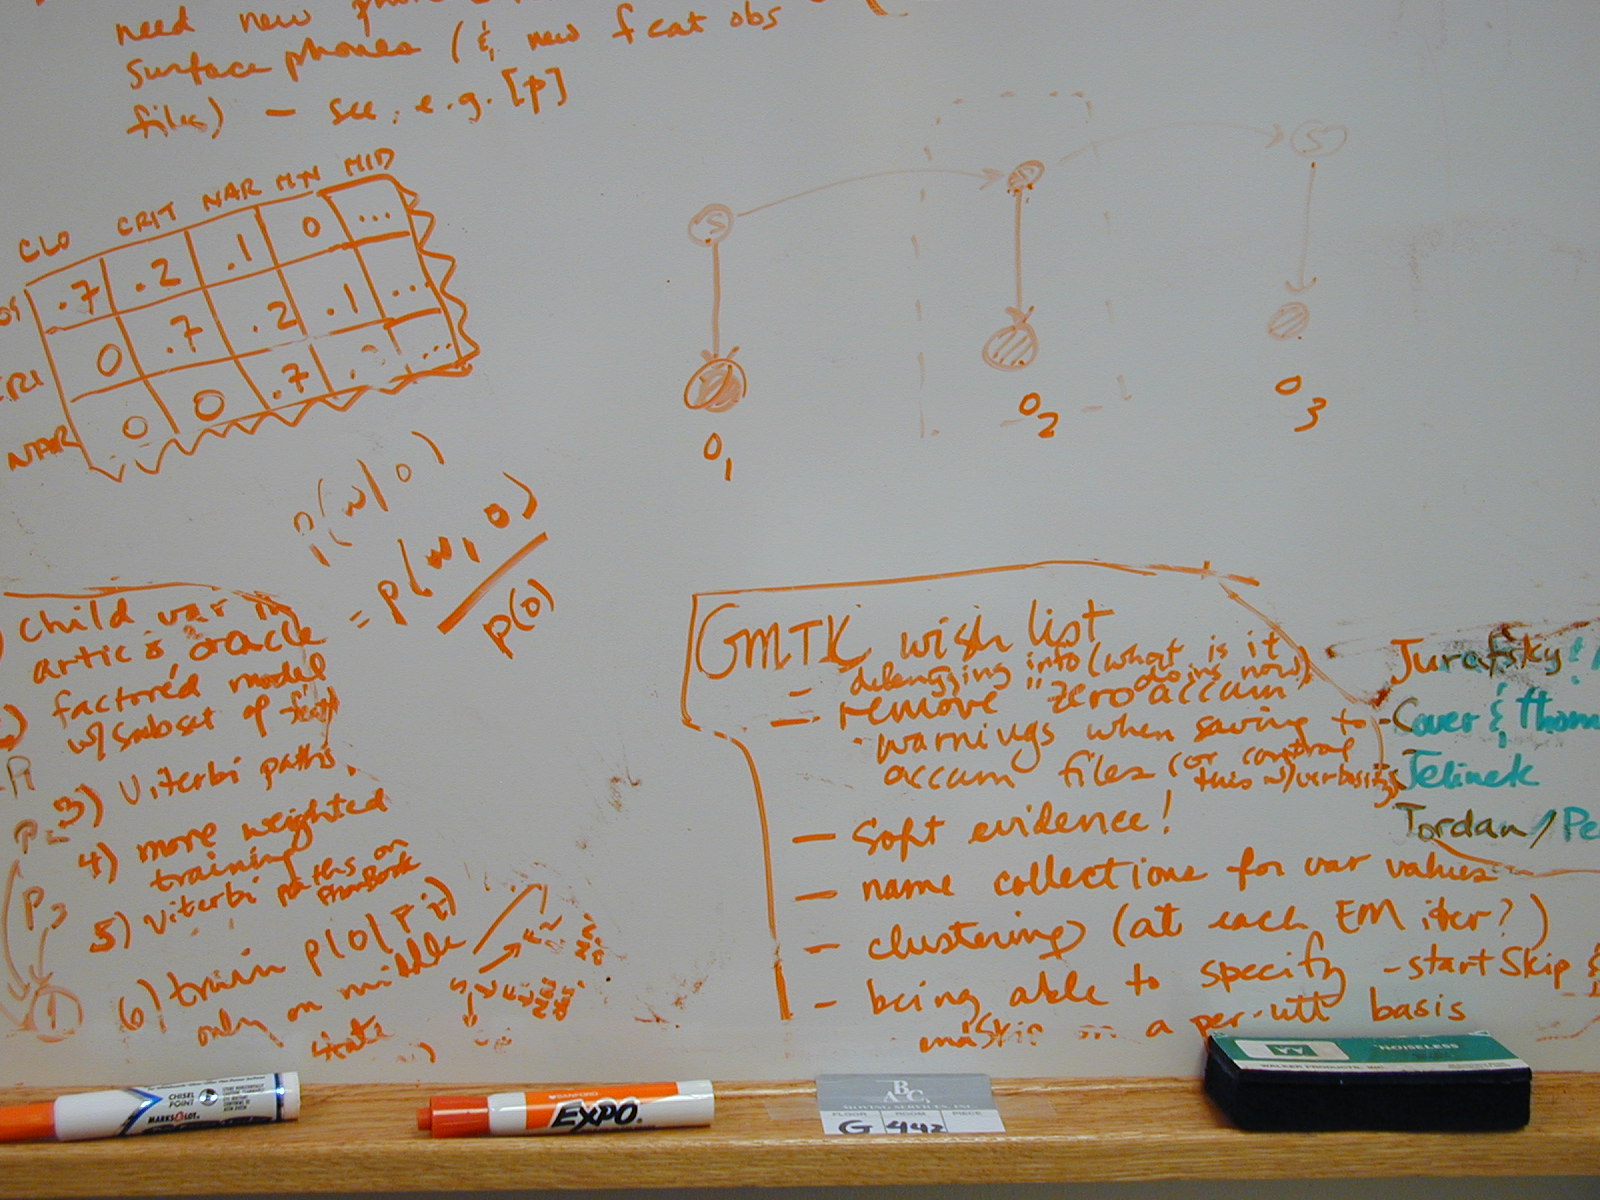 need new
surface phones (& new feat obs
files) - see, e.g. [p]
CLO CRIT NAR M-N MID
.7 .2 .1 0 ...
CRI 0 .7 .2 .1 ...
NAR 0 0 .7 ...
S
S
S
O1
O2
O3
p(w|o)
= p(w, o)
p(o)
child var in
artic & oracle
factored model
w/ subset of feats
3) Viterbi paths
4) more weighted
training
5) Viterbi paths on
phonebook
6) train p(o|
only on middle
state
P2
P3
GMTK wish list
- debugging info (what is it
doing now)
- remove "zero accum"
warnings when saving to
accum files (or control
this w/ verbosity)
- Soft evidence!
- name collections for var values
- clustering (at each EM iter?)
- being able to specify -startSkip &
a per-utt basis
Jurafsky &
Cover & Thom
Jelinek
Jordan / Pe
CHISEL POINT
MARKS-A-LOT
SANFORD
EXPO
ABC
MOVING SERVICES, INC.
FLOOR ROOM PIECE
G 442
NOISELESS
WALKER PRODUCTS, INC.